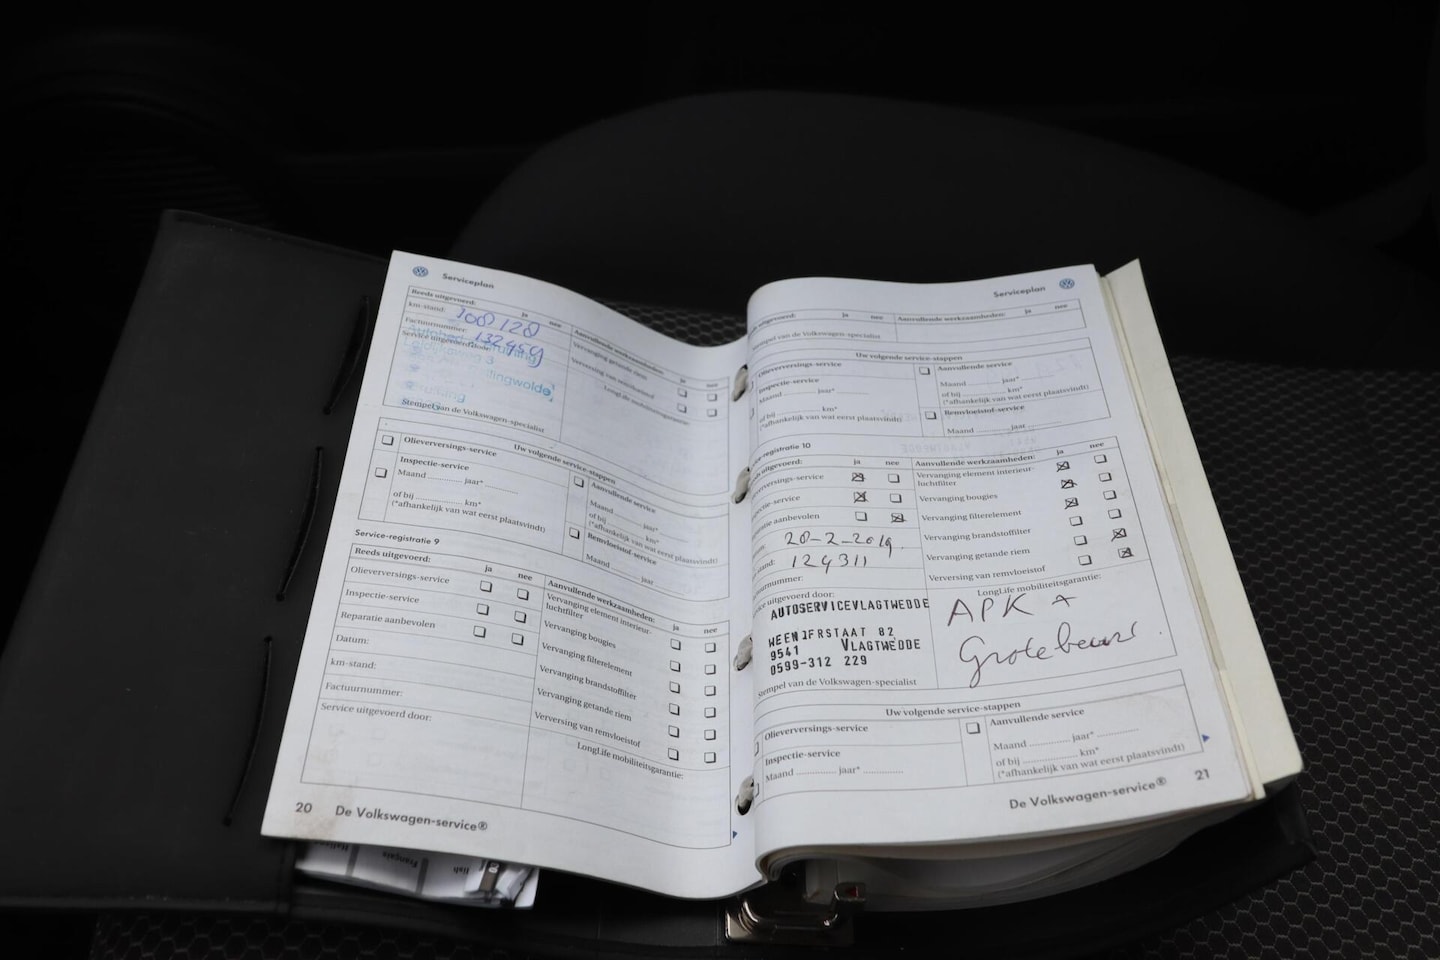 Serviceplan
Reeds uitgevoerd:
ja nee
km-stand: 108128
Factuurnummer: 132459
Service uitgevoerd door:
Stempel van de Volkswagen-specialist
Aanvullende werkzaamheden:
ja nee
Vervanging getande riem
Verversing van remvloeistof
LongLife mobiliteitsgarantie:
Uw volgende service-stappen
Olieverversings-service
Inspectie-service
Maand jaar*
of bij km*
(*afhankelijk van wat eerst plaatsvindt)
Aanvullende service
Maand jaar*
of bij km*
(*afhankelijk van wat eerst plaatsvindt)
Remvloeistof-service
Maand jaar
Service-registratie 9
Reeds uitgevoerd:
ja nee
Olieverversings-service
Inspectie-service
Reparatie aanbevolen
Datum:
km-stand:
Factuurnummer:
Service uitgevoerd door:
Aanvullende werkzaamheden:
ja nee
Vervanging element interieur-
luchtfilter
Vervanging bougies
Vervanging filterelement
Vervanging brandstoffilter
Vervanging getande riem
Verversing van remvloeistof
LongLife mobiliteitsgarantie:
20 De Volkswagen-service®
Serviceplan
uitgevoerd:
ja nee
Aanvullende werkzaamheden:
ja nee
stempel van de Volkswagen-specialist
Uw volgende service-stappen
Olieverversings-service
Inspectie-service
Maand jaar*
of bij km*
(*afhankelijk van wat eerst plaatsvindt)
Aanvullende service
Maand jaar*
of bij km*
(*afhankelijk van wat eerst plaatsvindt)
Remvloeistof-service
Maand jaar
registratie 10
uitgevoerd:
ja nee
verversings-service
service
aanbevolen
20-2-2019
124311
uitgevoerd door:
AUTOSERVICEVLAGTWEDDE
82
9541 VLAGTWEDDE
0599-312 229
Stempel van de Volkswagen-specialist
Aanvullende werkzaamheden:
ja nee
Vervanging element interieur-
luchtfilter
Vervanging bougies
Vervanging filterelement
Vervanging brandstoffilter
Vervanging getande riem
Verversing van remvloeistof
LongLife mobiliteitsgarantie:
APK +
Grote beurt
Uw volgende service-stappen
Olieverversings-service
Inspectie-service
Maand jaar*
Aanvullende service
Maand jaar*
of bij km*
(*afhankelijk van wat eerst plaatsvindt)
De Volkswagen-service® 21
Français